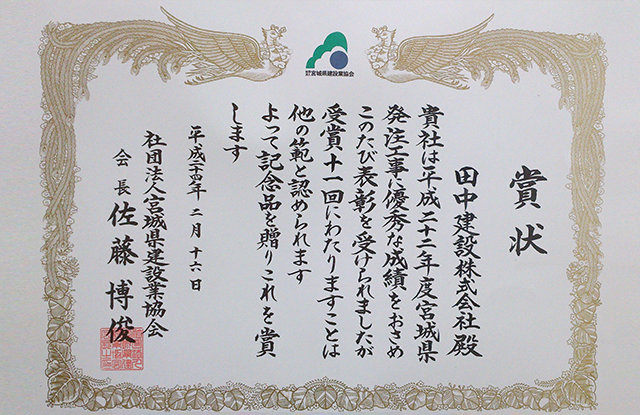 社団法人宮城県建設業協会
賞状
田中建設株式会社殿
貴社は平成二十二年度宮城県
発注工事に優秀な成績をおさめ
このたび表彰を受けられましたが
受賞十一回にわたりますことは
他の範と認められます
よって記念品を贈りこれを賞
します
平成二十四年二月十六日
社団法人宮城県建設業協会
会長佐藤博俊